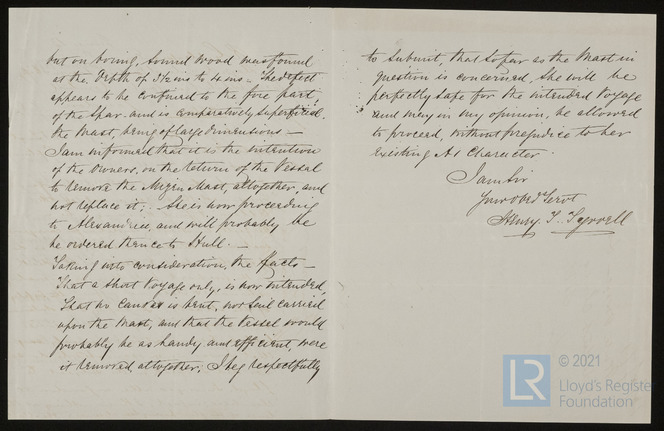 but on boring, sound wood was found
at the depth of 3½ ins to 4 ins – The defect
appears to be confined to the fore part
of the Spar and is comparatively superficial.
the Mast, being of large dimensions –
I am informed that it is the intention
of the Owners, on the return of the Vessel
to remove the Mizen Mast, altogether, and
not replace it; – She is now proceeding
to Alexandria, and will probably be
be ordered thence to Hull. –
Taking into consideration, the facts –
That a short Voyage only, is now intended
that no Canvas is bent, nor Sail carried
upon the Mast, and that the Vessel would
probably be as handy and efficient, were
it removed altogether, I beg respectfully
to submit, that so far as the Mast in
question is concerned, she will be
perfectly safe for the intended Voyage
and may in my opinion, be allowed
to proceed, without prejudice to her
existing A1 Character.
I am Sir
Your Obedt Servt
Henry T. Tyrrell
LR © 2021
Lloyd's Register
Foundation